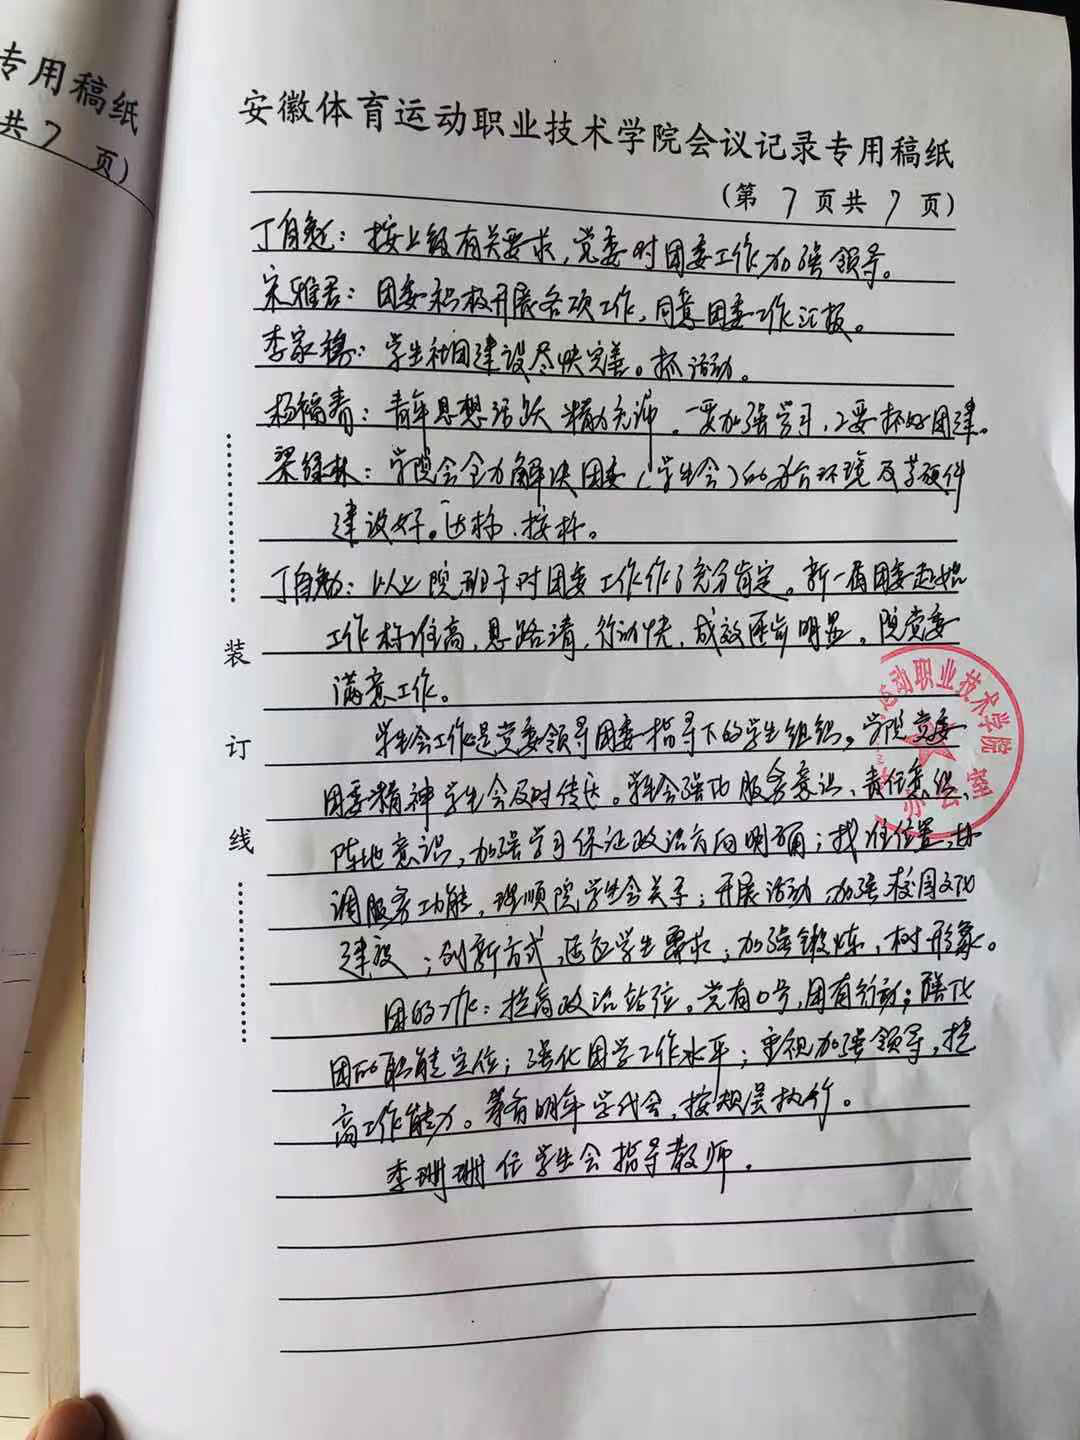 专用稿纸
共7页)
安徽体育运动职业技术学院会议记录专用稿纸
(第7页共7页)
丁自勉：按上级有关要求,党委对团委工作加强领导。
宋雅君：团委积极开展各项工作,同意团委工作汇报。
李家穗：学生社团建设尽快完善。抓活动。
杨福青：青年思想活跃精力充沛。一要加强学习,2要抓好团建。
梁绿林：学院会全力解决团委(学生会)的办公环境及其硬件
建设好。达标、授杯。
丁自勉：以上院班子对团委工作作了充分肯定。新一届团委起始
工作标准高,思路清,行动快,成效逐步明显。院党委
满意工作。
学生会工作是党委领导团委指导下的学生组织。学院党委
团委精神学生会及时传达。学生会强化服务意识、责任意识、
阵地意识,加强学习保证政治方向明确;找准位置,协
调服务功能,理顺院学生会关系;开展活动,加强校园文化
建设;创新方式,适应学生要求;加强锻炼,树形象。
团的工作：提高政治站位。党有口号,团有行动;强化
团的职能定位;强化团学工作水平;重视加强领导,提
高工作能力。筹备明年学代会,按规程执行。
李珊珊任学生会指导教师。
装
订
线
运动职业技术学院
办公室